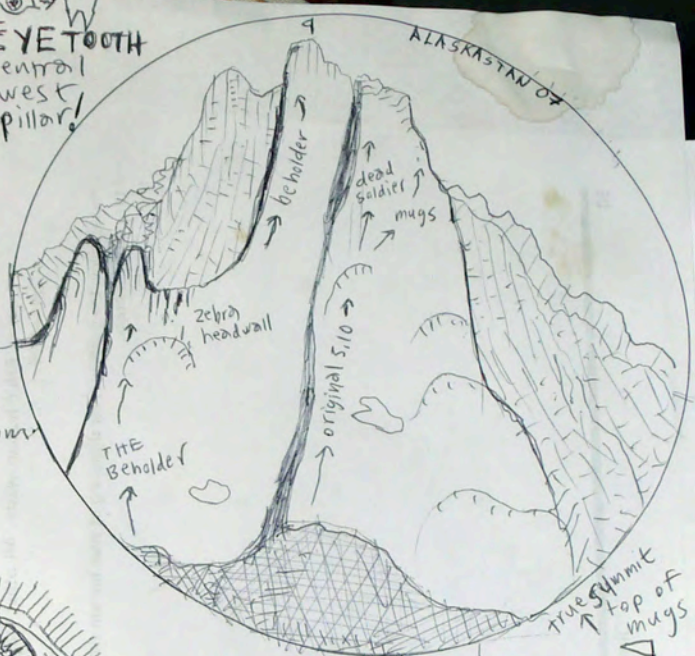 EYETOOTH
central
west
pillar!
ALASKASTAN 07
beholder
dead
soldier
mugs
zebra
headwall
original 5.10
THE
Beholder
true summit
top of
mugs